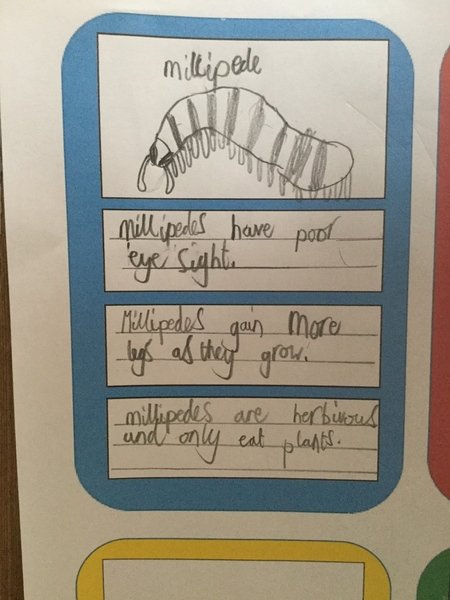 millipede
Millipedes have poor
eye sight.
Millipedes gain More
legs as they grow.
millipedes are herbivous
and only eat plants.